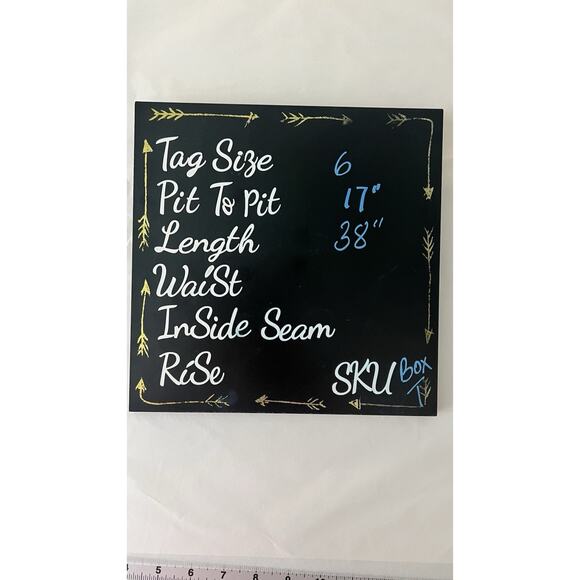 Tag Size 6
Pit To Pit 17"
Length 38"
WaiSt
InSide Seam
RiSe
SKU Box T
5 6 7 8 9